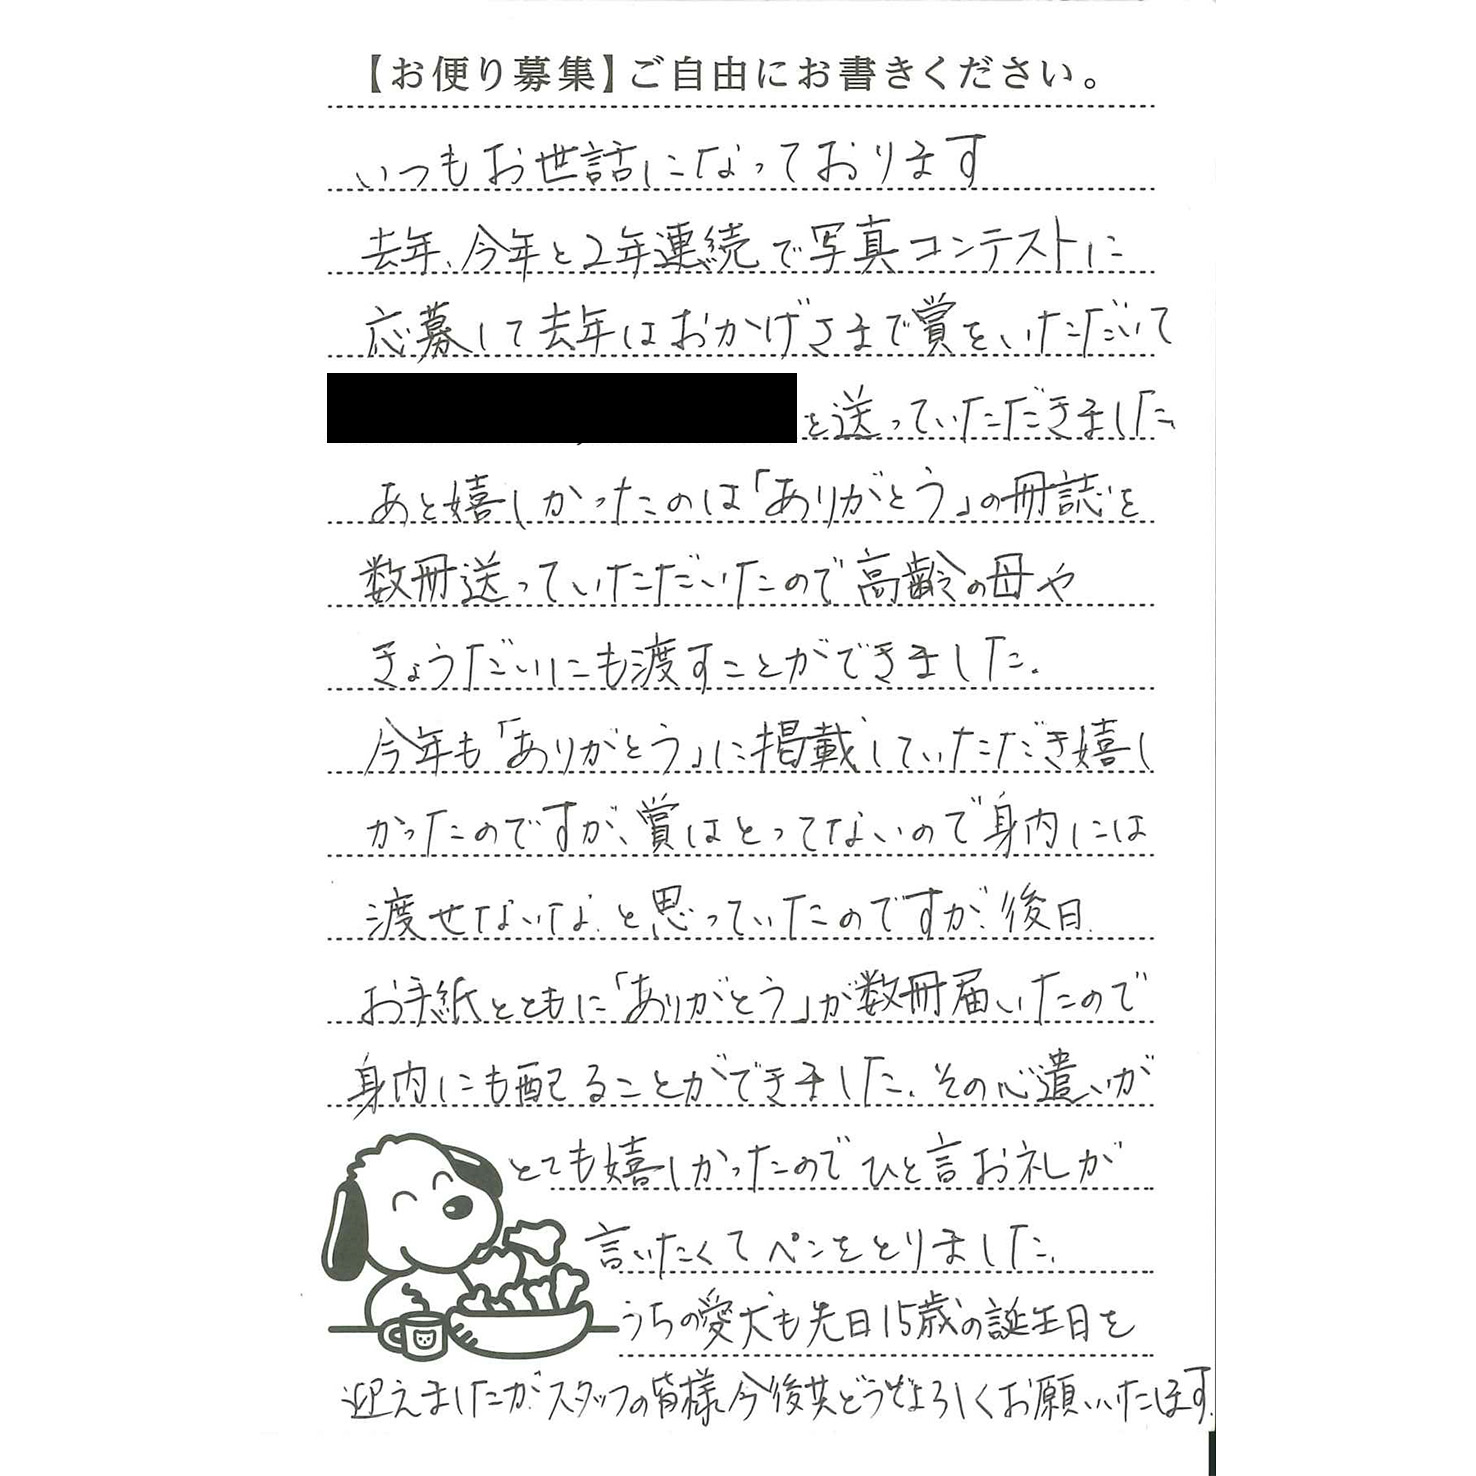 【お便り募集】ご自由にお書きください。
いつもお世話になっております
去年、今年と2年連続で写真コンテストに
応募して去年はおかげさまで賞をいただいて
を送っていただきました
あと嬉しかったのは「ありがとう」の冊誌を
数冊送っていただいたので高齢の母や
きょうだいにも渡すことができました.
今年も「ありがとう」に掲載していただき嬉し
かったのですが、賞はとってないので身内には
渡せないな.と思っていたのですが、後日
お手紙とともに「ありがとう」が数冊届いたので
身内にも配ることができました.その心遣いが
とても嬉しかったのでひと言お礼が
言いたくてペンをとりました.
うちの愛犬も先日15歳の誕生日を
迎えましたが、スタッフの皆様今後共どうぞよろしくお願いいたします.